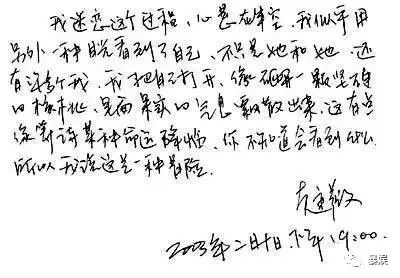 我迷恋这个过程，心悬在半空，我似乎用
另外一种目光看到了自己，不只是她和她，还
有许多个我，我把自己打开，像砸开一颗坚硬
的核桃，里面果实的气息飘散出来，这有点
像等待某种命运降临，你不知道会看到什么，
所以我说这是一种冒险。
2003年二月十日.下午，9:00.
晏娱